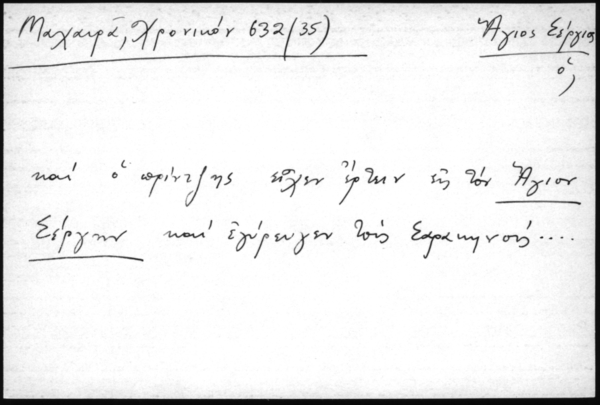 Μαχαιρᾶ, Χρονικόν 632 (35)
Ἅγιος Σέργιος,
ὁ
καί ὁ πρίντζης εἶχεν ἔρτειν εἰς τόν Ἅγιον
Σέργην καί ἐγύρευγεν τούς Σαρακηνούς....